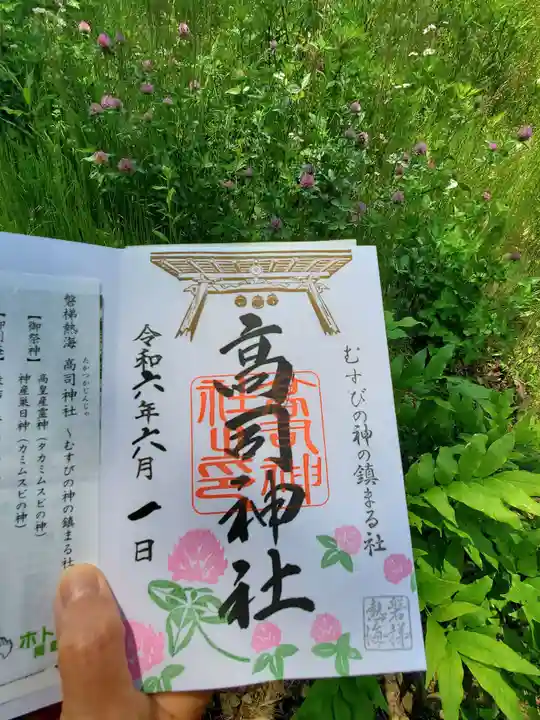 むすびの神の鎮まる社
高司神社
高司神
社之印
令和六年六月一日
磐梯
熱海
たかつかさじんじゃ
磐梯熱海 高司神社 ~むすびの神の鎮まる社
【御祭神】
高皇産霊神(タカミムスビの神)
神産巣日神(カミムスビの神)
ホト